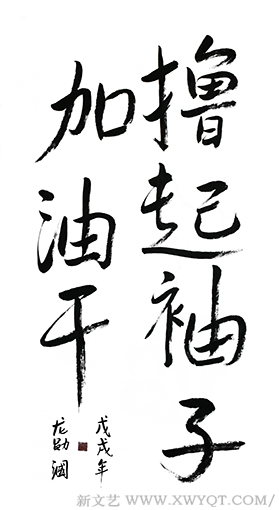 撸起袖子
加油干
戊戌年
龙勋国
新文艺 WWW.XWYQT.COM/